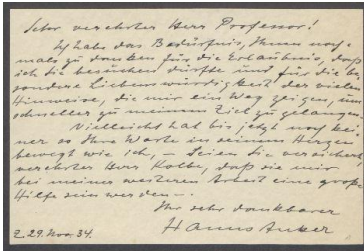 Sehr verehrter Herr Professor!
Ich habe das Bedürfnis, Ihnen noch-
mals zu danken für die Erlaubnis, daß
ich Sie besuchen durfte und für die be
sondere Liebenswürdigkeit der vielen
Hinweise, die mir ein Weg zeigen, um
schneller zu meinem Ziel zu gelangen.
Vielleicht hat bis jetzt noch kei
ner so Ihre Worte in seinem Herzen
bewegt wie ich, u. seien Sie versichert
verehrter Herr Kolbe, daß sie mir
bei meiner weiteren Arbeit eine große
Hilfe sein werden.
Ihr sehr dankbarer
Hanns Anker
29. Nov. 34.